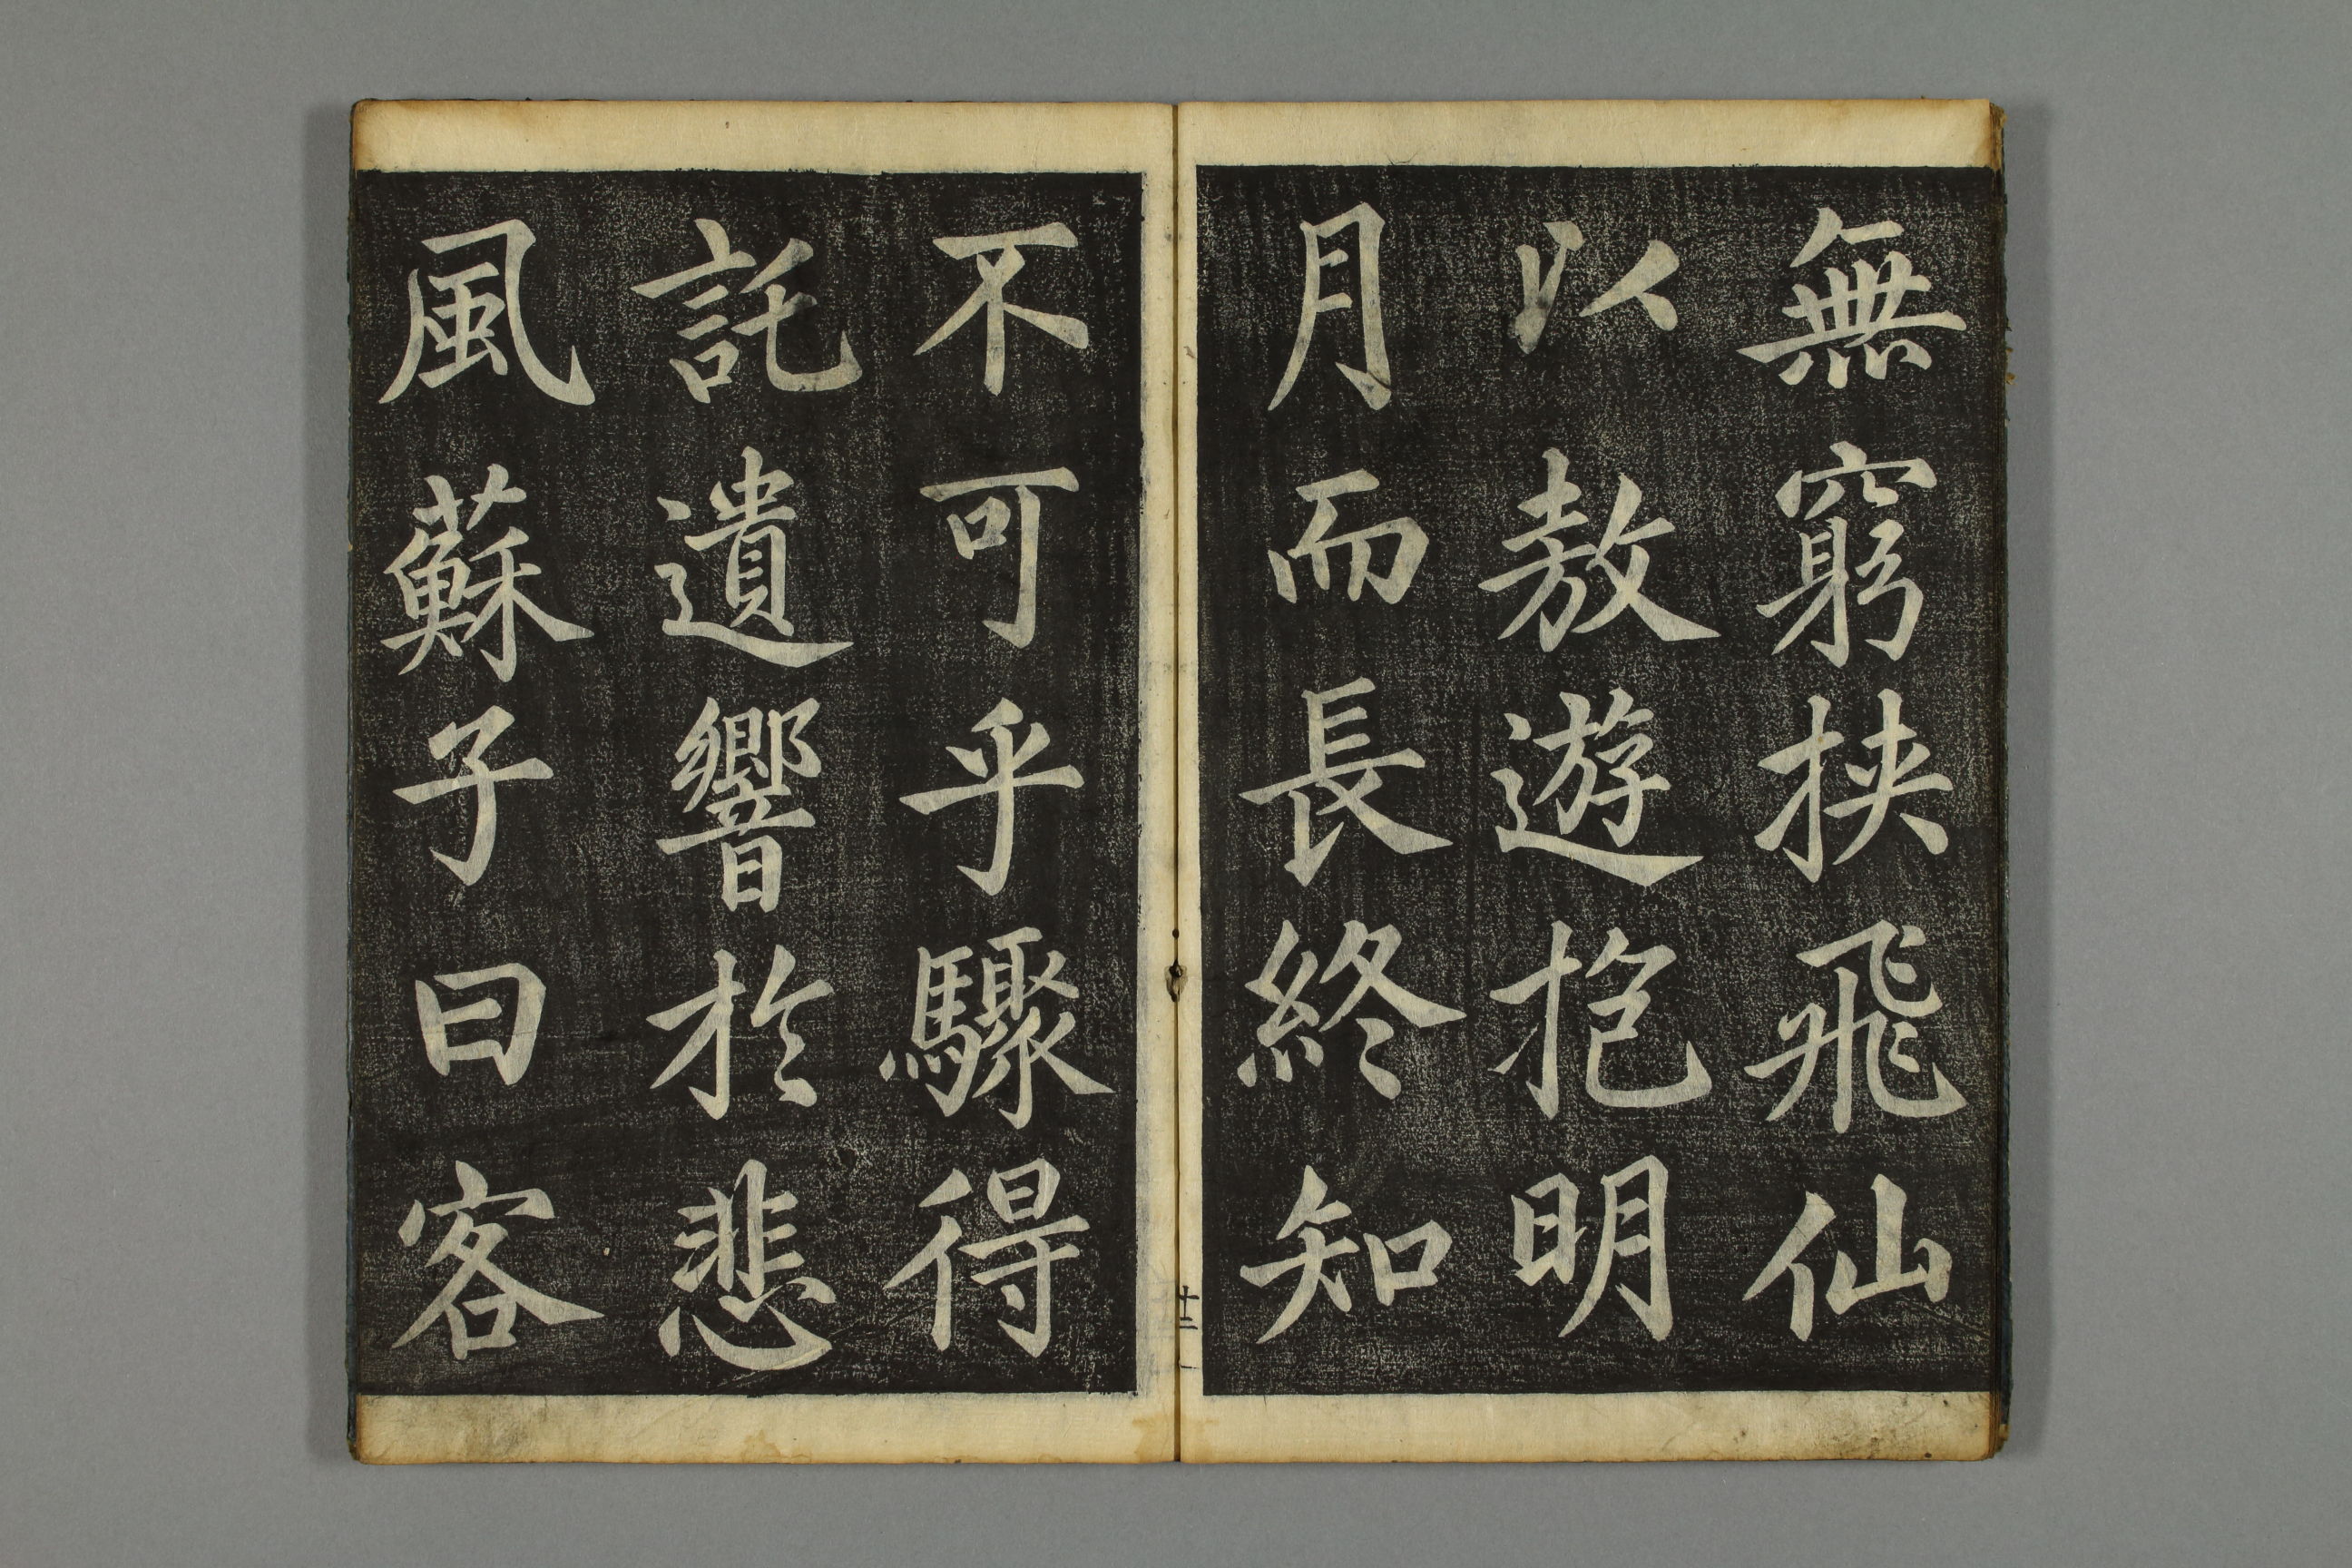 無窮挟飛仙
以敖遊抱明
月而長終知
不可乎驟得
託遺響於悲
風蘇子曰客
十二